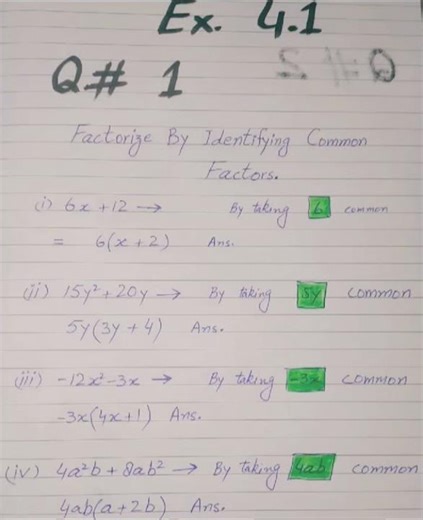 Ex. 4.1
Q# 1
Q# 2
Factorize By Identifying Common
Factors.
(i) 6x + 12 → By taking 6 common
= 6(x + 2) Ans.
(ii) 15y² + 20y → By taking 5y common
5y(3y + 4) Ans.
(iii) -12x² - 3x → By taking -3x common
-3x(4x + 1) Ans.
(iv) 4a²b + 8ab² → By taking 4ab common
4ab(a + 2b) Ans.